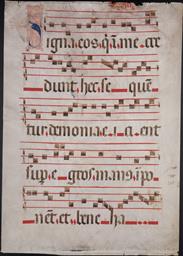 Signa eos, q̄ i me cre
dunt, hec se quē
tur. demonia e i ci ent
sup, e gros manus īpo
nēt, et bene ha